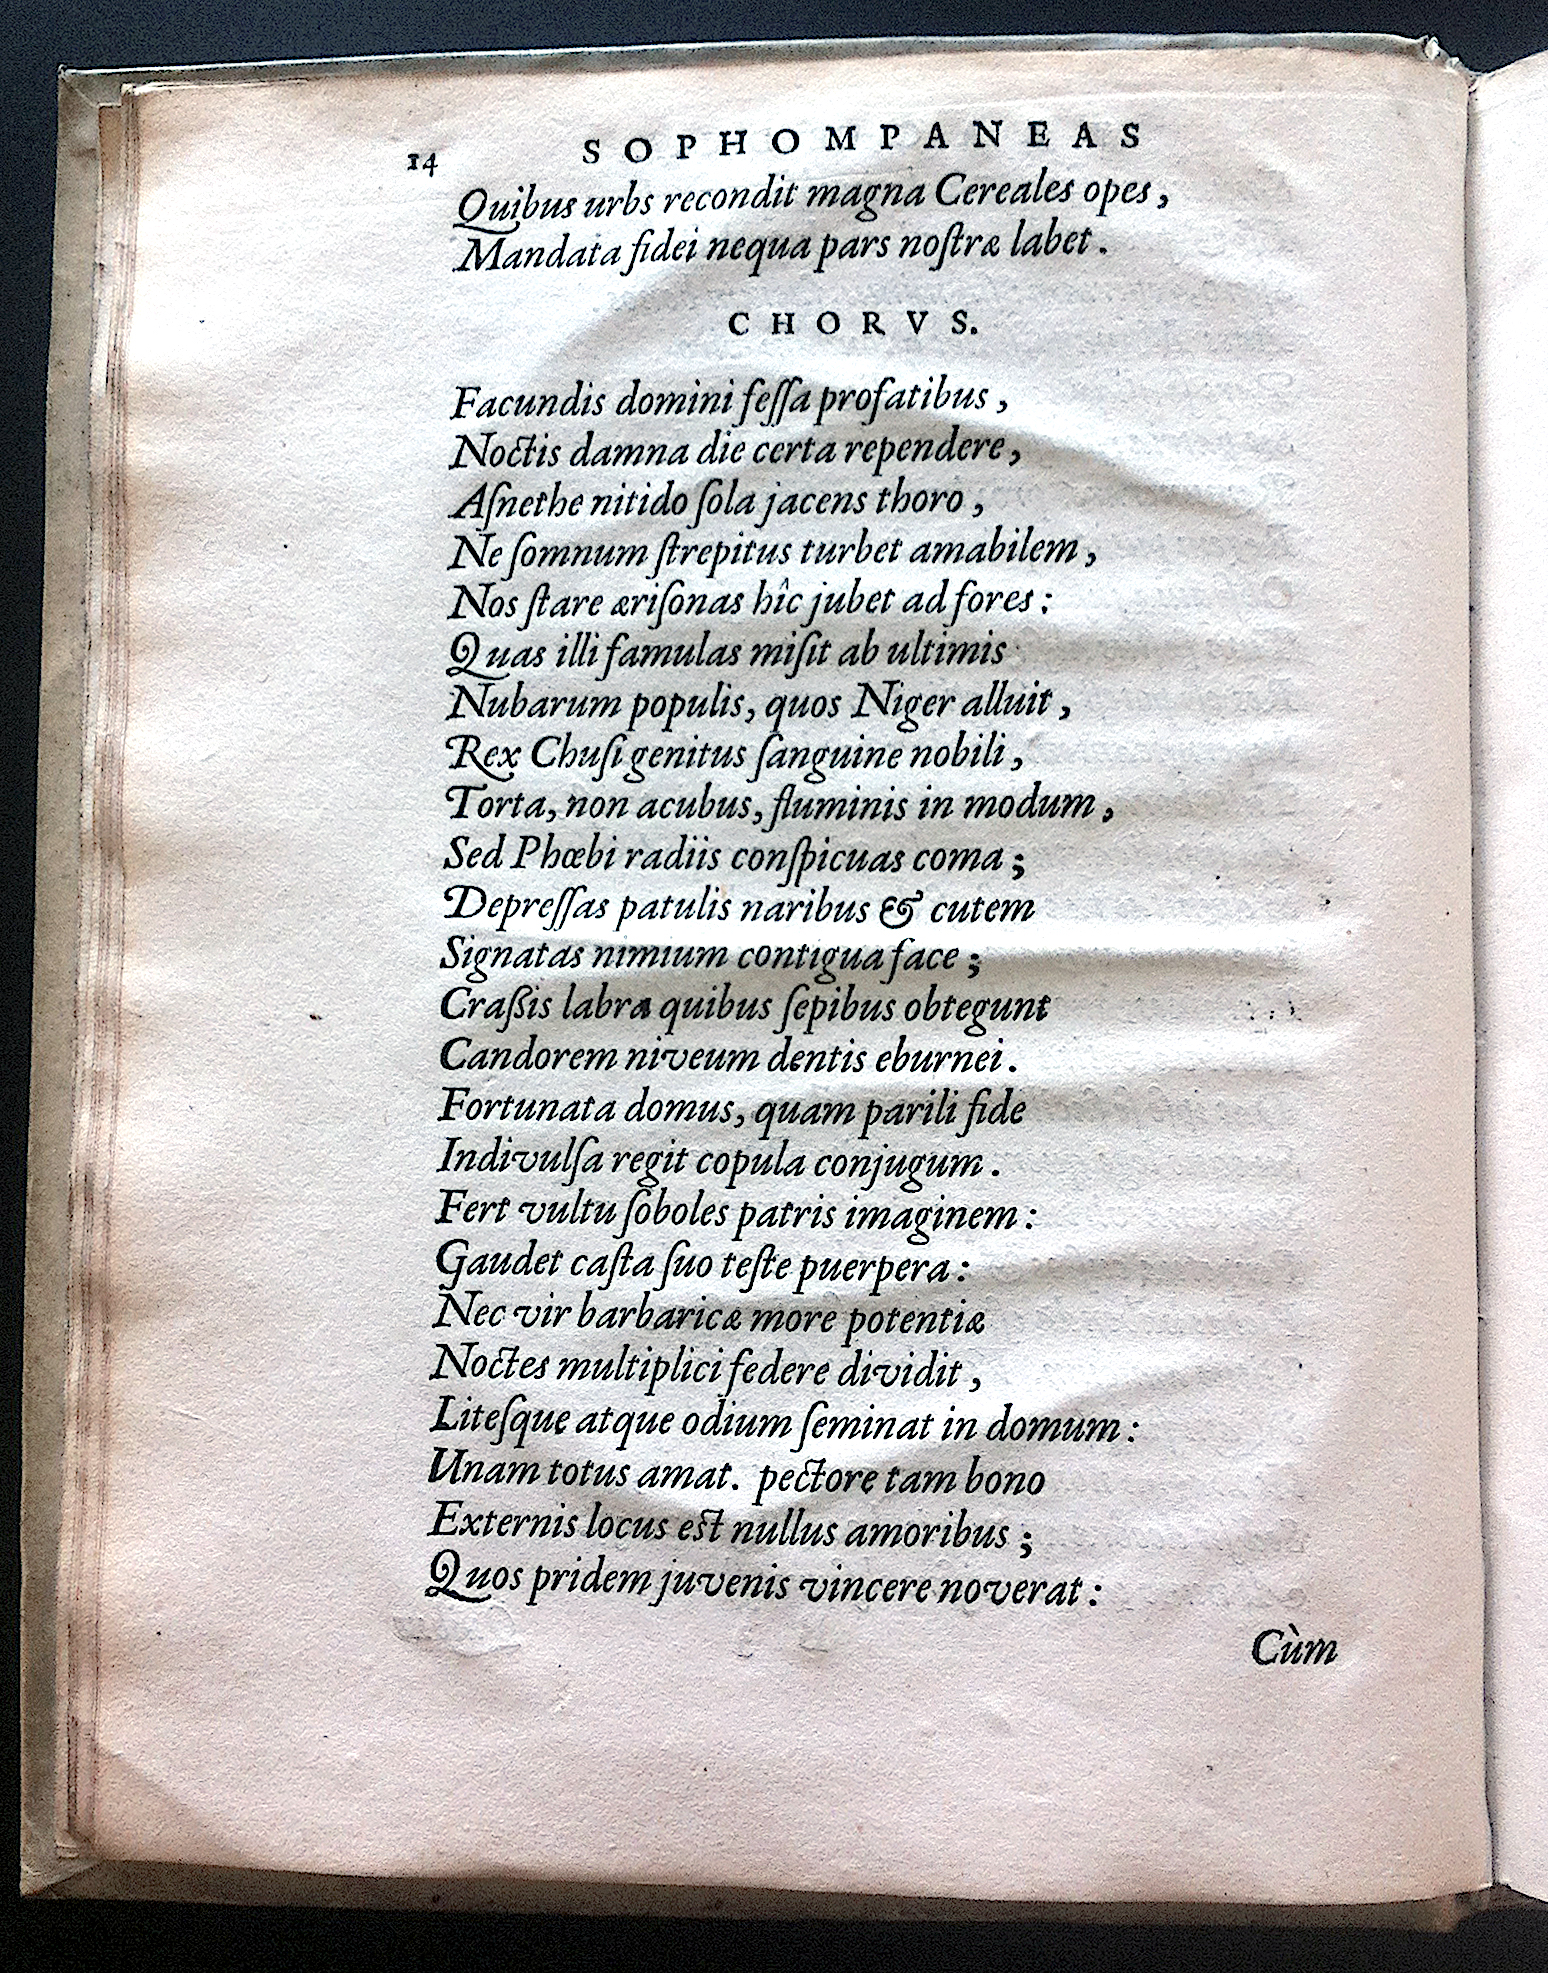 14 SOPHOMPANEAS
Quibus urbs recondit magna Cereales opes,
Mandata fidei nequa pars noſtræ labet.
CHORVS.
Facundis domini feſſa profatibus,
Noctis damna die certa rependere,
Aſnethe nitido ſola jacens thoro,
Ne ſomnum ſtrepitus turbet amabilem,
Nos ſtare æriſonas hîc jubet ad fores:
Quas illi famulas miſit ab ultimis
Nubarum populis, quos Niger alluit,
Rex Chuſi genitus ſanguine nobili,
Torta, non acubus, fluminis in modum,
Sed Phœbi radiis conſpicuas coma;
Depreſſas patulis naribus & cutem
Signatas nimium contigua face;
Craßis labra quibus ſepibus obtegunt
Candorem niveum dentis eburnei.
Fortunata domus, quam parili fide
Indivulſa regit copula conjugum.
Fert vultu ſoboles patris imaginem:
Gaudet caſta ſuo teſte puerpera:
Nec vir barbaricæ more potentiæ
Noctes multiplici federe dividit,
Liteſque atque odium ſeminat in domum:
Unam totus amat. pectore tam bono
Externis locus eſt nullus amoribus;
Quos pridem juvenis vincere noverat:
Cùm